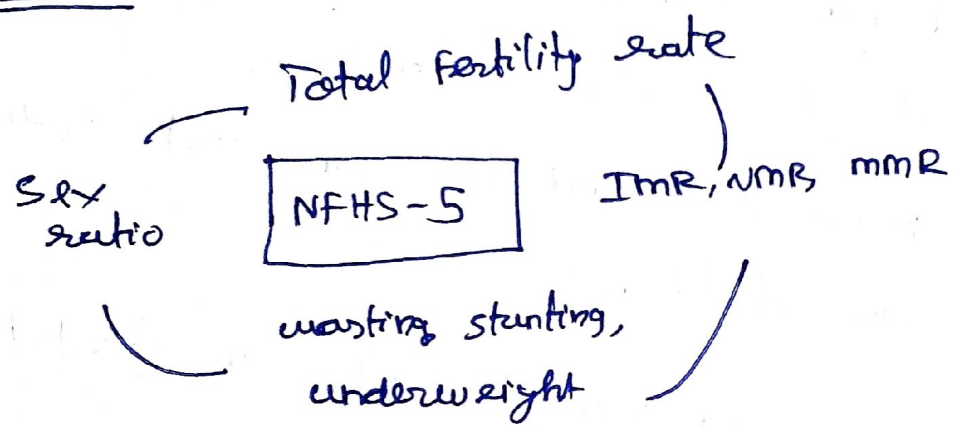 Total Fertility rate
Sex ratio
NFHS-5
IMR, NMR, MMR
wasting, stunting,
underweight